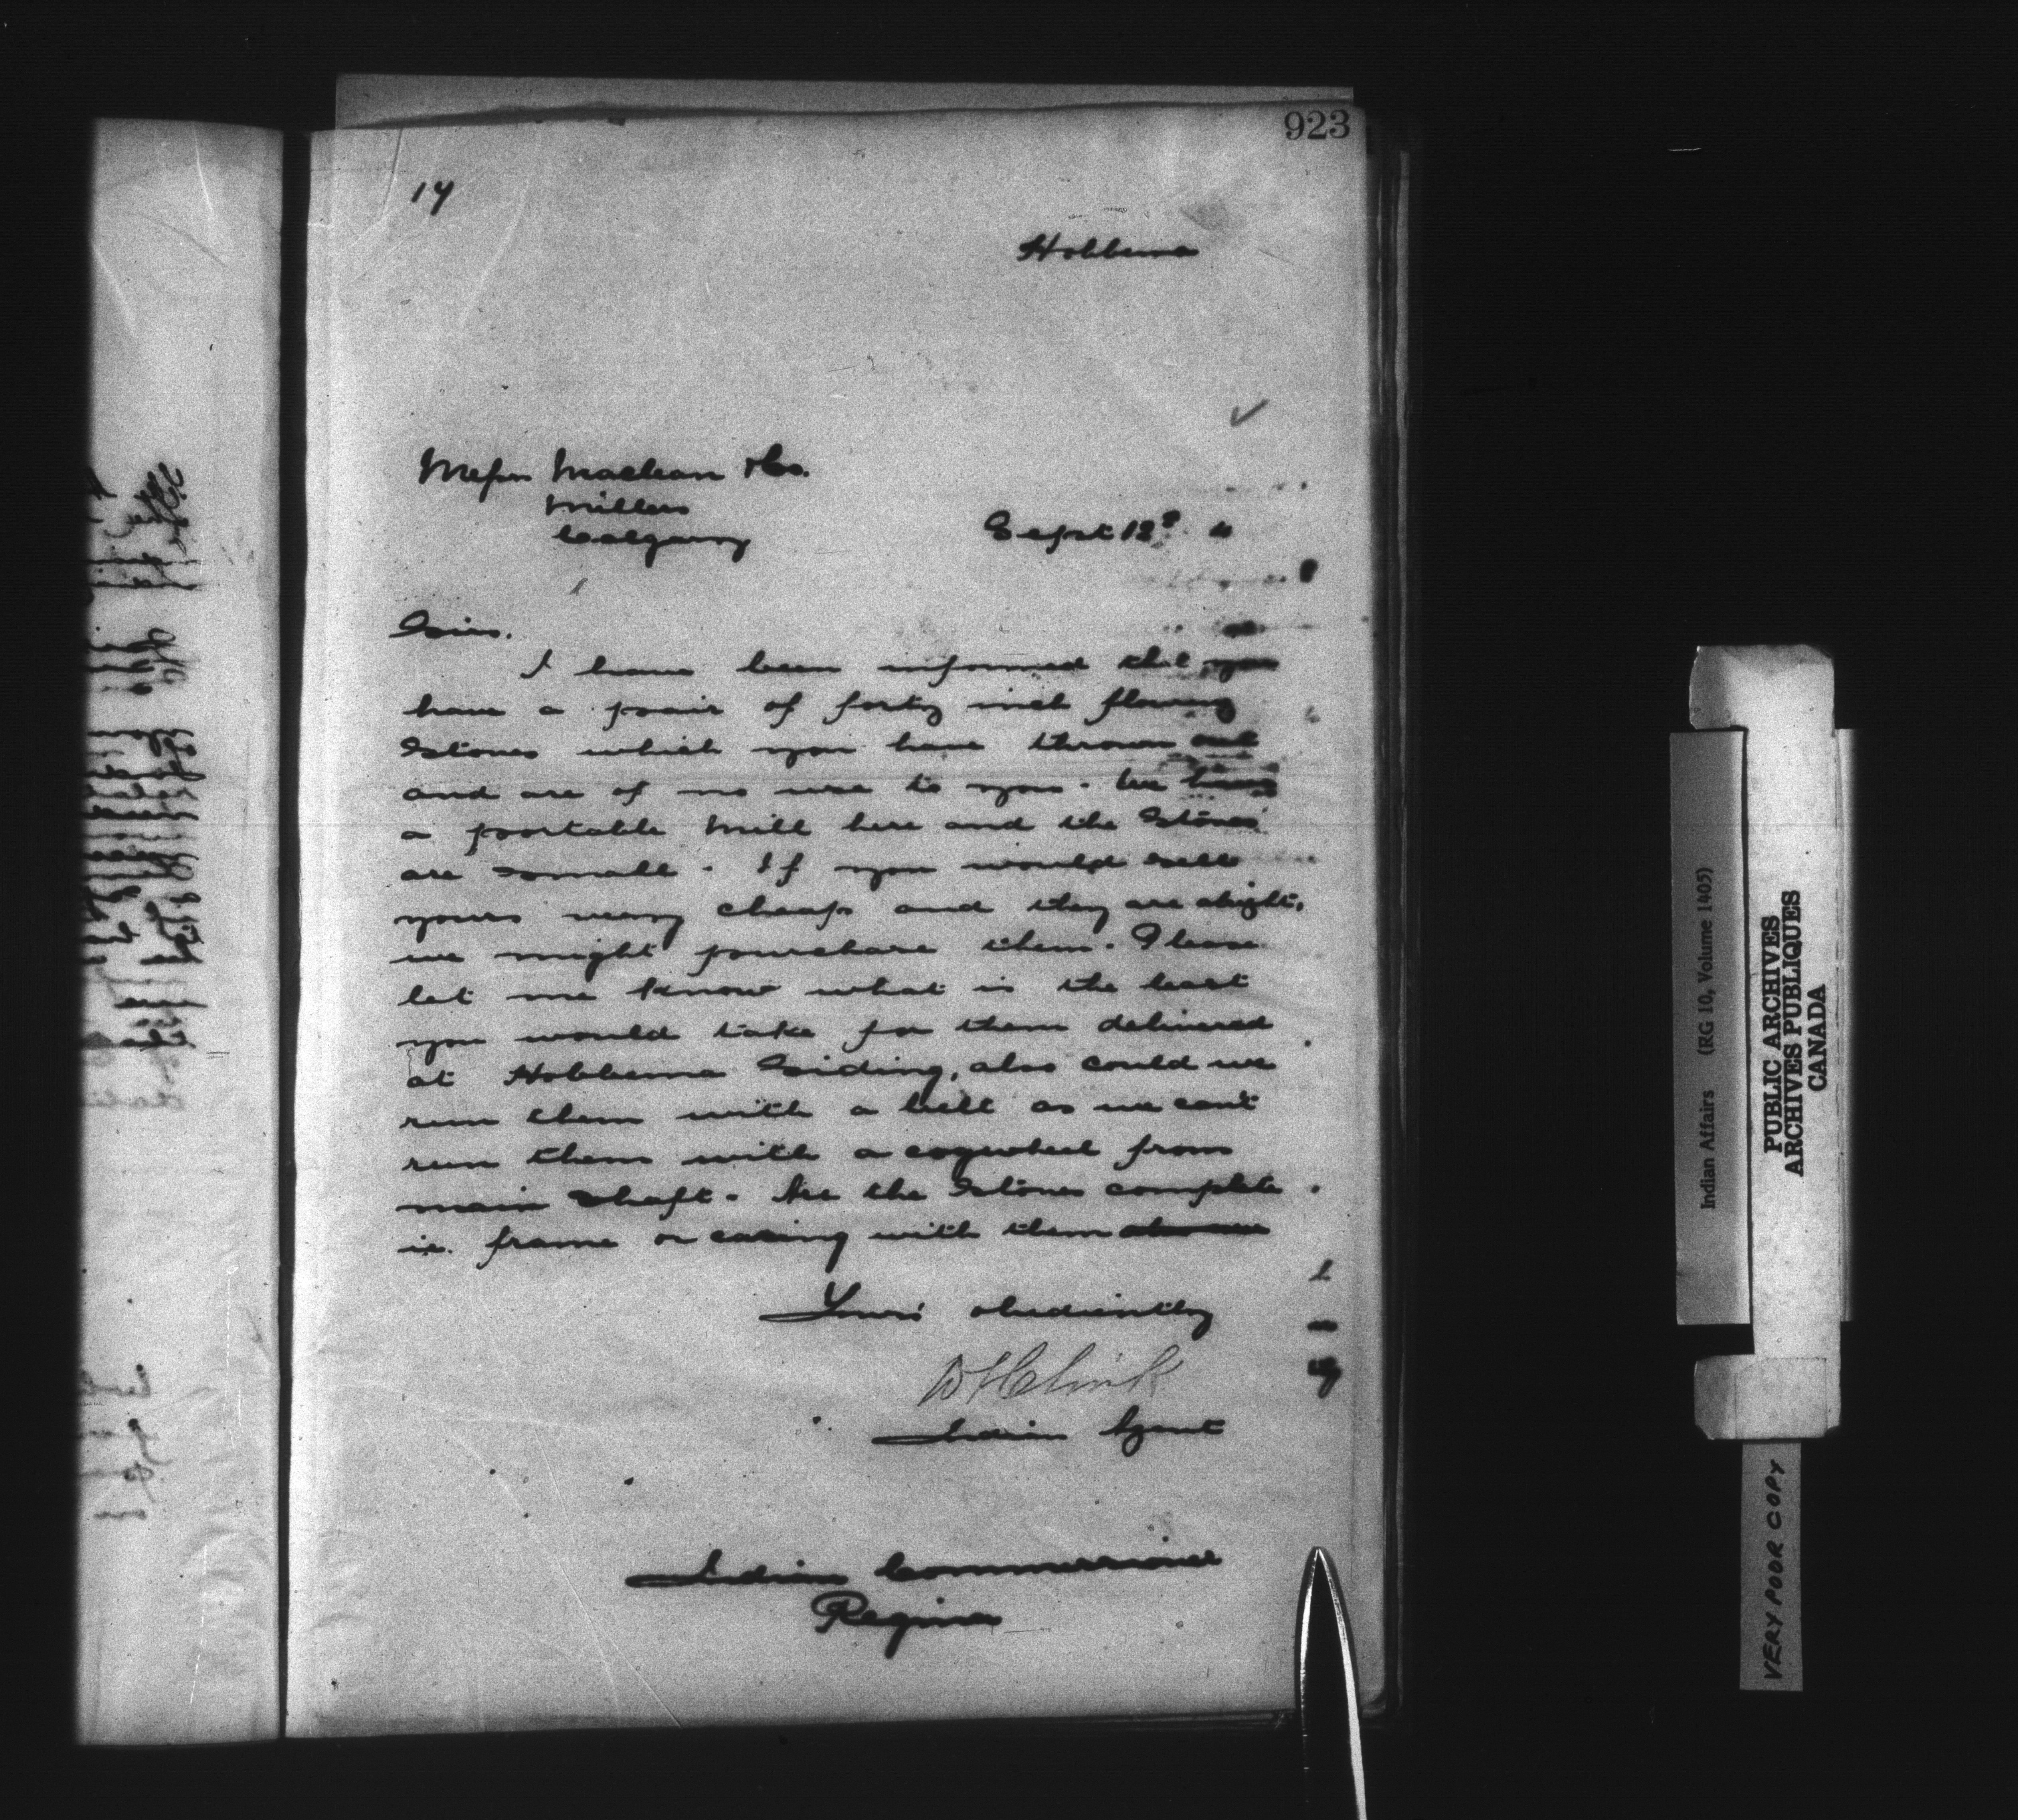 923
14
Hobbema
Messrs Maclean & Co.
Millers
Calgary
Sept 12
Sirs.
I have been informed that you
have a pair of forty inch flouring
Stones which you have thrown out
and are of no use to you. We have
a portable Mill here and the Stones
are small. If you would sell
yours very cheap and they are alright,
we might purchase them. Please
let me know what is the least
you would take for them delivered
at Hobbema Siding, also could we
run them with a belt as we can't
run them with a cogwheel from
main shaft. Are the Stones complete
ie. frame or casing with them
Your obediently
D H Clink
Indian Agent
Indian Commissioner
Regina
Indian Affairs (RG 10, Volume 1405)
PUBLIC ARCHIVES
ARCHIVES PUBLIQUES
CANADA
VERY POOR COPY